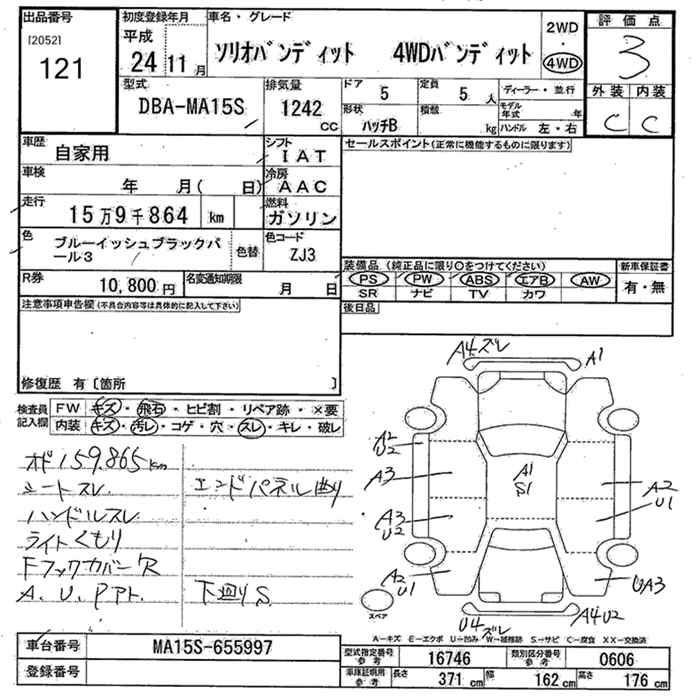 出品番号 初度登録年月 車名・グレード 2WD 評価点
[2052]
121
平成 24 11月 ソリオバンディット 4WDバンディット ・ 4WD 3
型式 DBA-MA15S 排気量 1242 cc ドア 5 定員 5 人 ディーラー・並行 外装 内装
形状 ハッチB 積載 kg モデル年式 年 C C
ハンドル 左・右
車歴 自家用 シフト IAT セールスポイント(正常に機能するものに限ります)
車検 年 月( 日) 冷房 AAC
走行 15万9千864 km 燃料 ガソリン
色 ブルーイッシュブラックパール3 色替 色コード ZJ3
装備品(純正品に限り〇をつけてください) 新車保証書
R券 10,800円 名変通知期限 月 日 PS PW ABS エアB AW 有・無
SR ナビ TV カワ
注意事項申告欄(不具合内容等は具体的に記入して下さい) 後日品
修復歴 有〔箇所 〕
検査員記入欄 FW キズ・飛石・ヒビ割・リペア跡・×要
内装 キズ・汚レ・コゲ・穴・スレ・キレ・破レ
オド159,865km
シートスレ エンドパネル曲り
ハンドルスレ
ライトくもり
FフックカバーR
A、U、Pアト、 下廻りS
A4ズレ A1
A2 U2
A3 A1 S1 A2 U1
A3 U2
A2 U1 UA3
スペア U4ズレ A4U2
A－キズ E－エクボ U－凹み W－補修跡 S－サビ C－腐食 XX－交換済
車台番号 MA15S-655997 型式指定番号 参考 16746 類別区分番号 参考 0606
登録番号 車庫証明用 参考 長さ 371 cm 幅 162 cm 高さ 176 cm